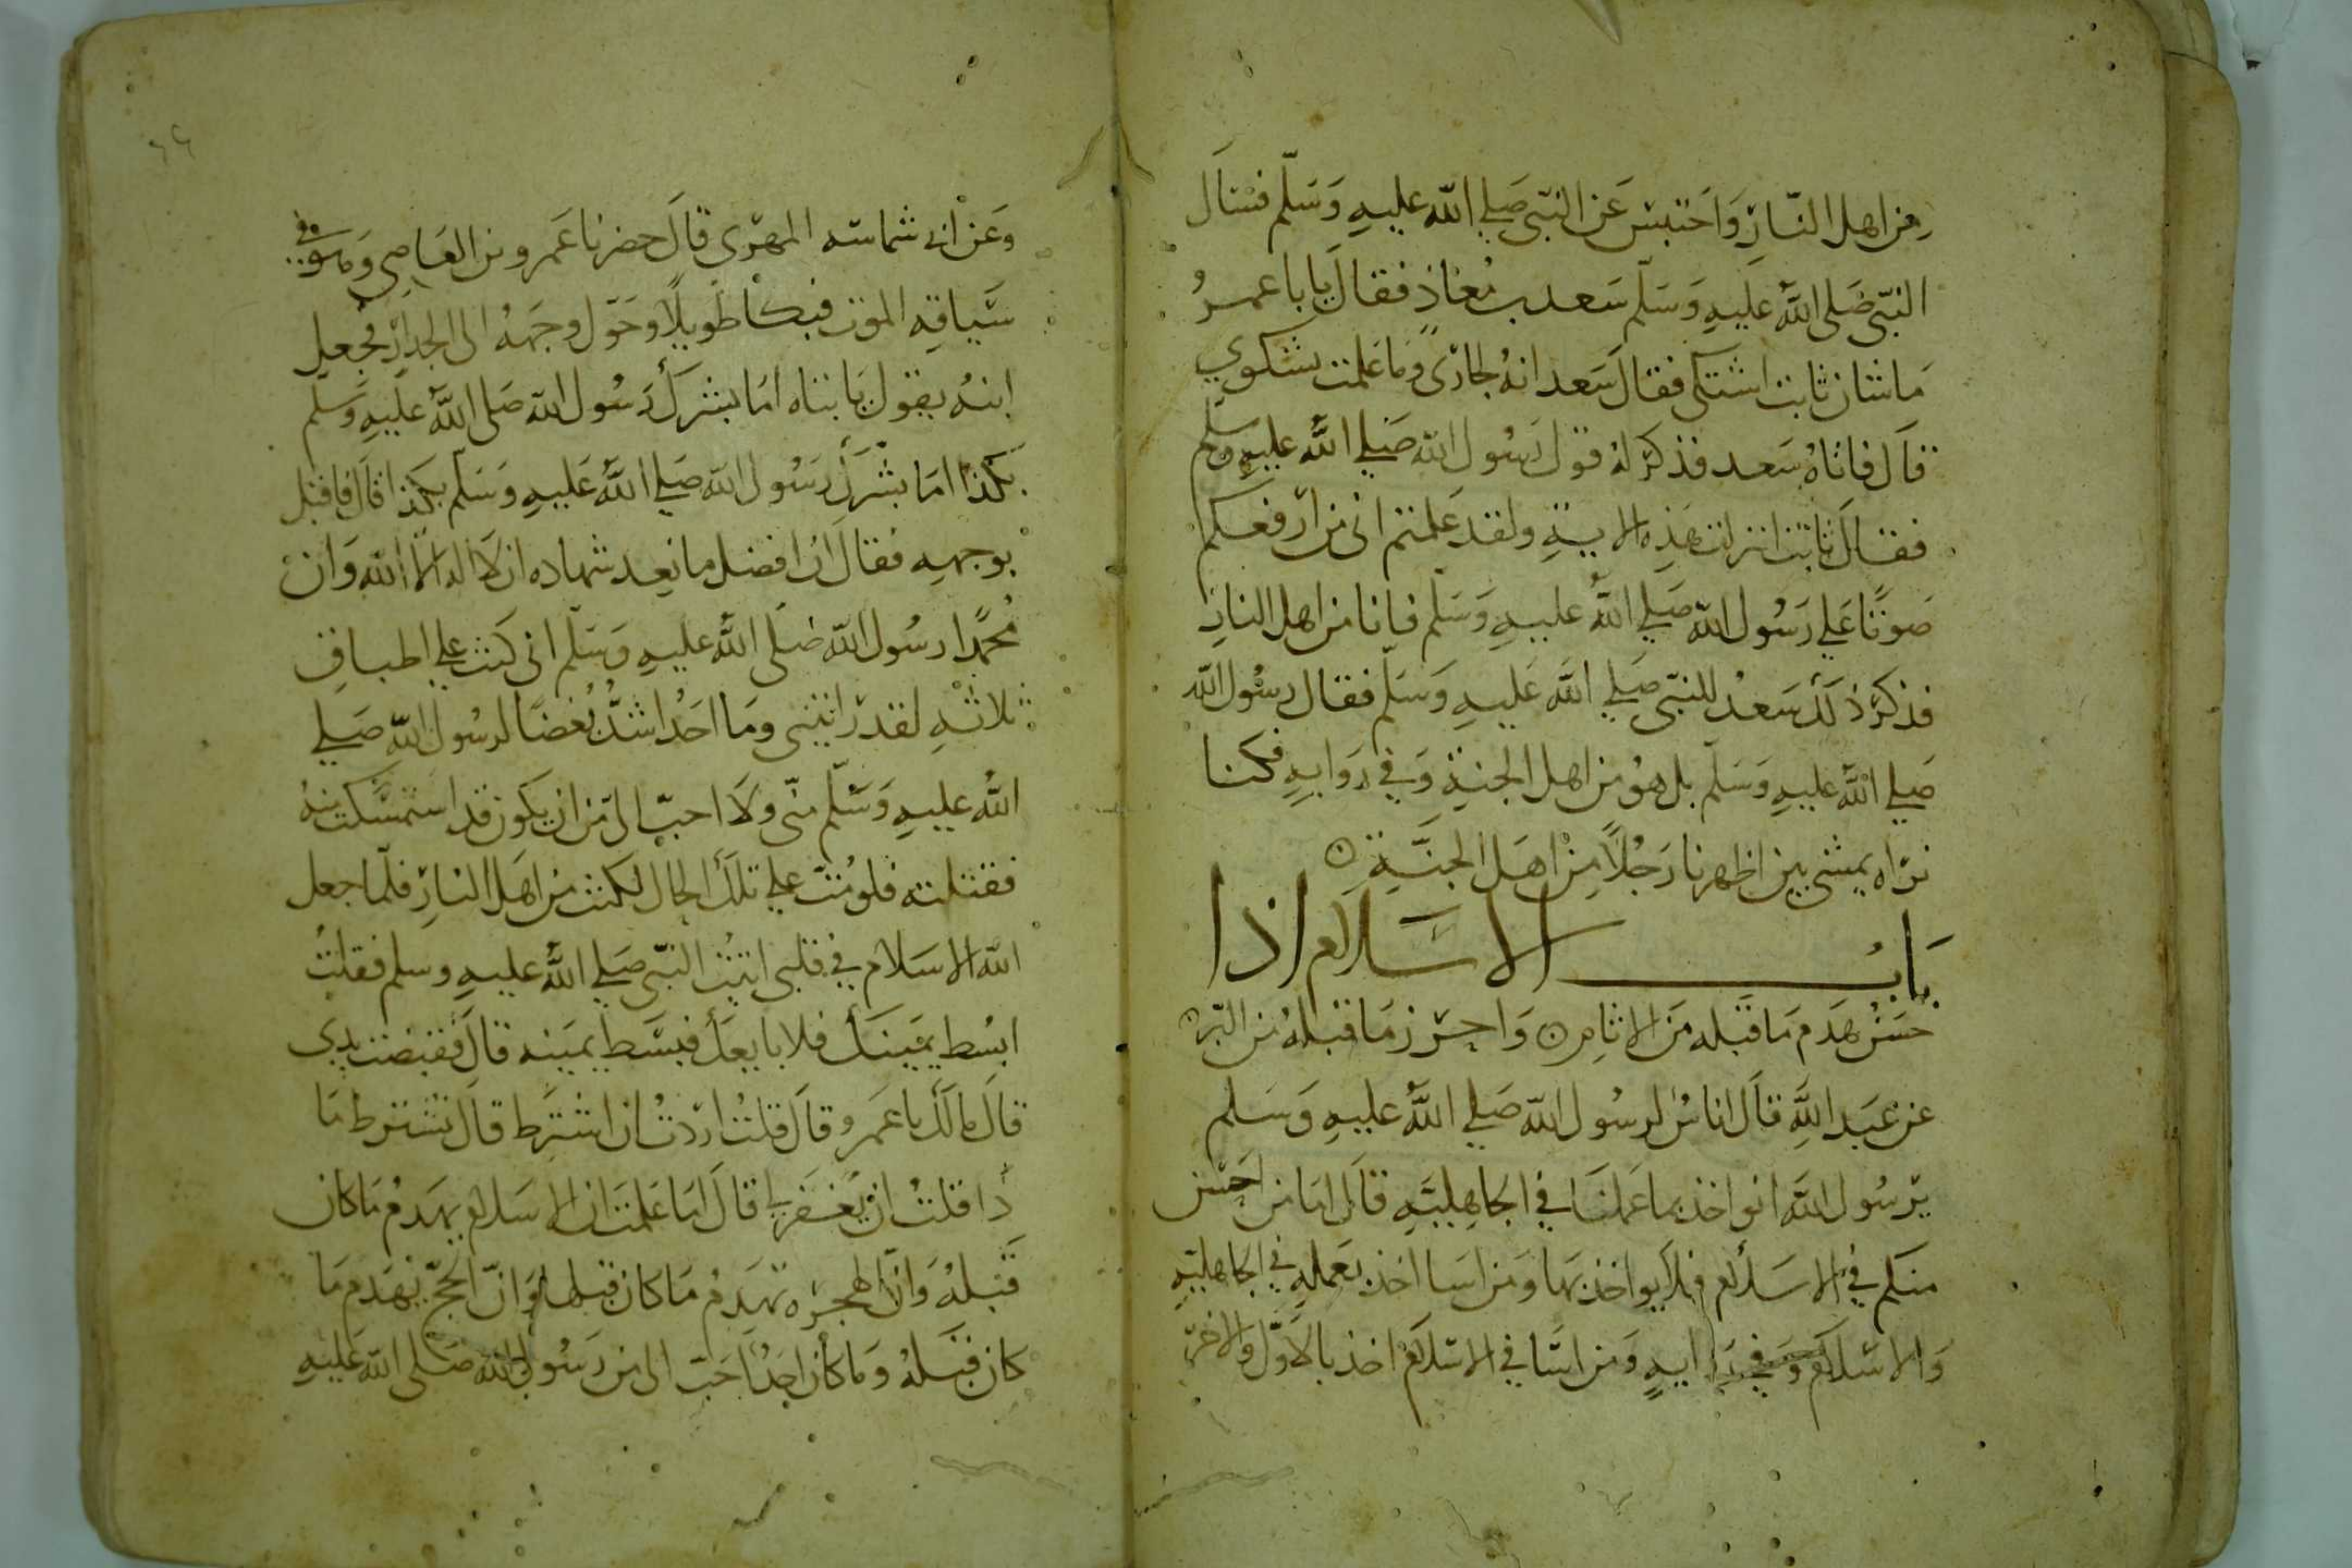 من اهل النار واحتبس عن النبي صلي الله عليه وسلم فسال
النبي صلي الله عليه وسلم سعد بن معاذ فقال يابا عمرو
ما شان ثابت اشتكى فقال سعد انه لجاري وما علمت بشكوي
قال فاتاه سعد فذكر له قول رسول الله صلي الله عليه وسلم
فقال ثابت انزلت هذه الاية ولقد علمتم اني من ارفعكم
صوتا علي رسول الله صلي الله عليه وسلم فانا من اهل النار
فذكر ذلك سعد للنبي صلي الله عليه وسلم فقال رسول الله
صلي الله عليه وسلم بل هو من اهل الجنة وفي رواية فكنا
نراه يمشي بين اظهرنا رجلا من اهل الجنة
باب الاسلام اذا
حسن هدم ما قبله من الاثام واحرز ما قبله من البر
عن عبد الله قال اناس لرسول الله صلي الله عليه وسلم
يرسول الله انواخذ بما عملنا في الجاهلية قال اما من احسن
منكم في الاسلام فلا يواخذ بها ومن اسا اخذ بعمله في الجاهلية
والاسلام وفي رواية ومن اسا في الاسلام اخذ بالاول والاخر
٦٦
وعن ابي شماسه المهري قال حضرنا عمرو بن العاصي وهو في
سياقه الموت فبكا طويلا وحول وجهه الى الجدار فجعل
ابنه يقول يابتاه اما بشرك رسول الله صلي الله عليه وسلم
بكذا اما بشرك رسول الله صلي الله عليه وسلم بكذا قال فاقبل
بوجهه فقال ان افضل ما نعد شهاده ان لا اله الا الله وان
محمدا رسول الله صلي الله عليه وسلم اني كنت علي اطباق
ثلاثه لقد رايتني وما احد اشد بغضا لرسول الله صلي
الله عليه وسلم مني ولا احب الي من ان يكون قد استمسكت منه
فقتلته فلو مت علي تلك الحال لكنت من اهل النار فلما جعل
الله الاسلام في قلبي اتيت النبي صلي الله عليه وسلم فقلت
ابسط يمينك فلابايعك فبسط يمينه قال فقبضت يدي
قال مالك يا عمرو قال قلت اردت ان اشترط قال تشترط ما
ذا قلت ان يغفر لي قال اما علمت ان الاسلام يهدم ما كان
قبله وان الهجره تهدم ما كان قبلها وان الحج يهدم ما
كان قبله وما كان احد احب الي من رسول الله صلي الله عليه